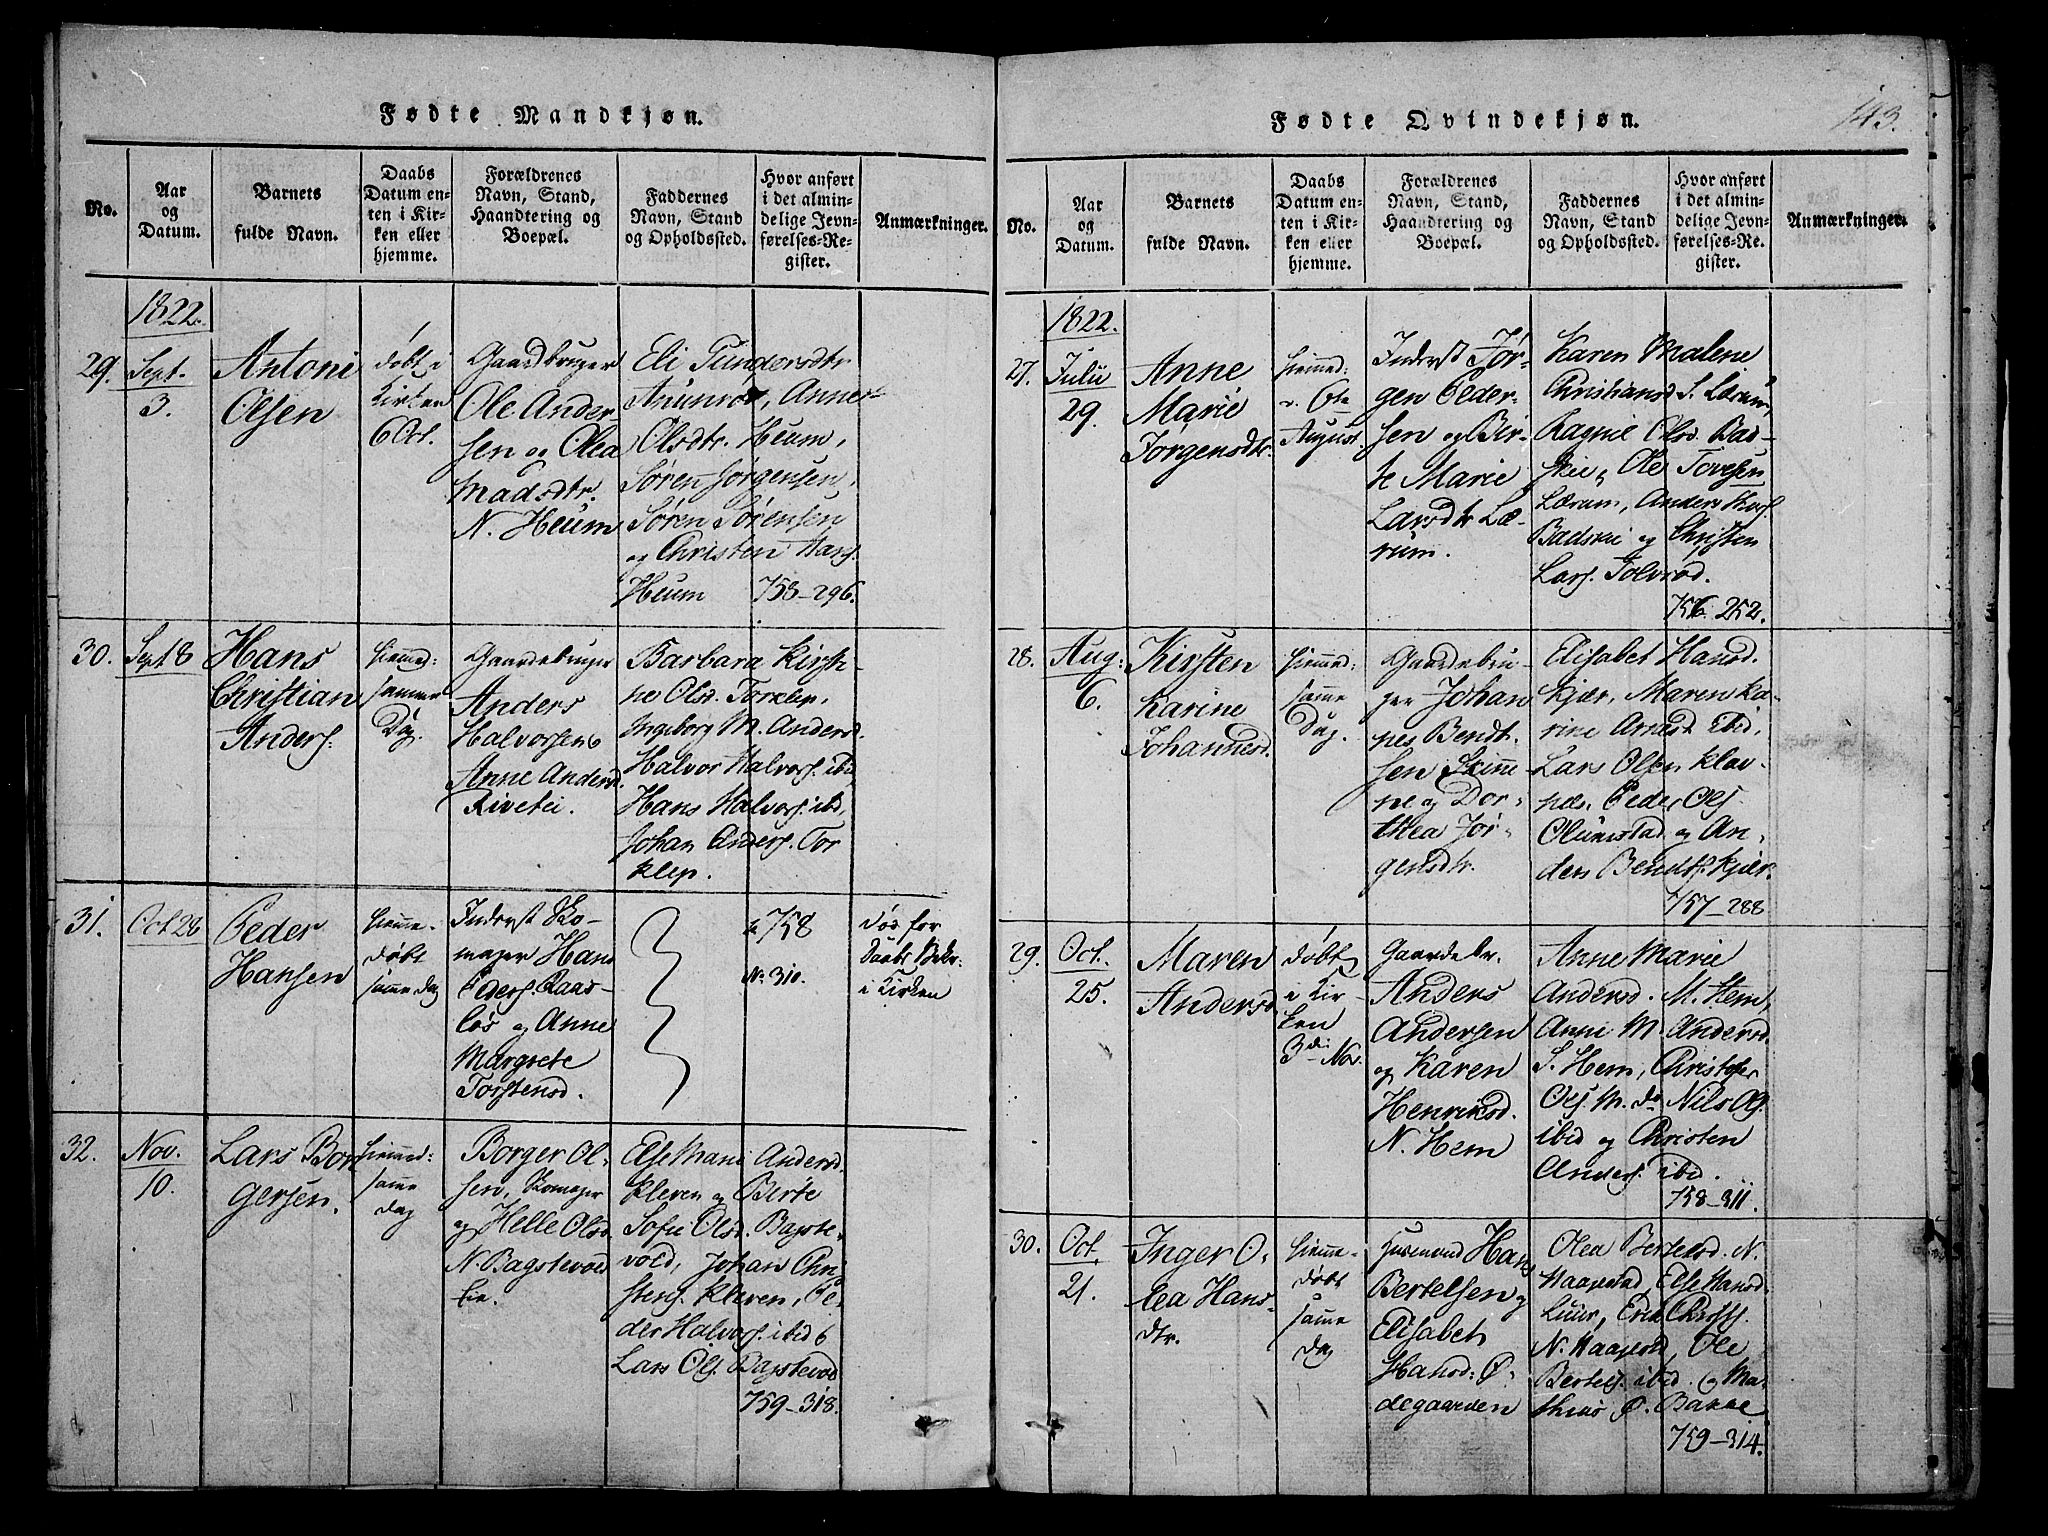 Fødte Mandkjøn.
No.
Aar
og
Datum.
Barnets
fulde Navn.
Daabs
Datum en-
ten i Kir-
ken eller
hjemme.
Forældrenes
Navn, Stand,
Haandtering og
Boepæl.
Faddernes
Navn, Stand
og Opholdssted.
Hvor anført
i det almin-
delige Jevn-
førelses-Re-
gister.
Anmærkninger.
1822.
29.
Sept.
3.
Antoni
Olsen
døbt i
Kirken
6 Oct.
Gaardbruger
Ole Ander
sen og Olea
Madsdtr.
N. Heum
Eli Gundersdtr
Anne
Olsdtr. Heum,
Søren Jørgensen,
Søren Sørensen
og Christen Hans.
Heum
758-296.
30.
Sept 18
Hans
Christian
Anders.
hiemed:
samme
Dag.
Gaardebruger
Anders
Halvorsen &
Anne Andersd.
Barbara Kirsti-
ne Olsd. Torklep,
Ingeborg M. Andersd.
Halvor Halvors. ibid
Hans Halvors. ibd,
Johan Anders. Tor
klep.
31.
Oct 28
Peder
Hansen
hieme-
døbt
same dag
Inderst Sko-
mager Hans
Peders.
og Anne
Margrete
Torstensd.
758
N. 310.
døs for
Daabs Bekr.
i Kirken
32.
Nov.
10.
Lars Bor
gersen.
hiemmed:
same
dag
Borger Ol-
sen, Skomager
og Helle Olsd.
N. Bagstevold
eie.
Else Marie Andersd.
Kleven og Berte
Sofie Olsd. Bagste-
vold, Johan Chri
stens. Kleven, Pe-
der Halvors. ibid &
Lars Ols. Bagstevold
759-318.
Fødte Qvindekjøn.
143.
No.
Aar
og
Datum.
Barnets
fulde Navn.
Daabs
Datum en-
ten i Kir-
ken eller
hjemme.
Forældrenes
Navn, Stand,
Haandtering og
Boepæl.
Faddernes
Navn, Stand
og Opholdssted.
Hvor anført
i det almin-
delige Jevn-
førelses-Re-
gister.
Anmærkninger.
1822.
27.
Julii
29.
Anne
Marie
Jørgensdtr.
hiemed:
August.
Inderst Jør-
gen Peder-
sen og Bir-
te Marie
Larsdtr Læ-
rum.
Karen Malene
Christiansd. S. Lærum,
Ragnie Olsd. Bad-
skie, Ole Tovesen
Lærum, Anders
Badskie og Christen
Lars. Tolvsrod.
756-252.
28.
Aug:
6.
Kirsten
Karine
Johannesd.
hiemmed:
same
Dag.
Gaardebru-
ger Johan
nes Bendt-
sen Skinne-
ne og Dor-
thea Jør-
gensdtr.
Elisabet Hansd.
Kjær, Maren Ka-
rine Arnesd. Ebid,
Lars Olsen Klav-
nes. Peder Ols.
Olumstad og An-
ders Bendts. Kjær.
757-288
29.
Oct.
25.
Maren
Andersd
døbt
i Kir-
ken
3die Nov.
Gaardebr.
Anders
Andersen
og Karen
Henriksd.
N. Hem
Anne Marie
Andersd. M. Hem,
Anne M. Andersd.
S. Hem, Christofer
Ols. M. do Nils Ols.
ibid og Christen
Anders. ibid.
758-311.
30.
Oct.
21.
Inger O-
lea Hans-
dtr.
hieme-
døbt
samme
dag
Husmand Hans
Bertelsen og
Elisabet
Hansd: Ø-
degaarden
Olea Bertelsd. N.
Haapestad, Else Hansd.
Luur, Erik Christs.
N. Haapestd, Ole
Bertels. ibid. og Ma-
thias Ø. Bakke
759-314.